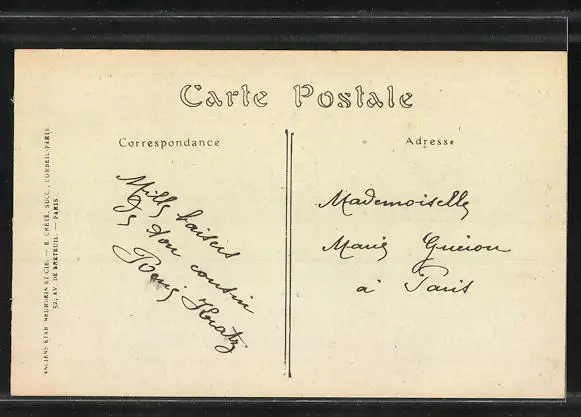 Carte Postale
Correspondance
Adresse
Mille baisers
de ton cousin
Remy
Mademoiselle
Marie Guérou
à Paris
ANCIENS ETAB. NEURDEIN ET CIE. — E. CRÉTÉ, SUCC., CORBEIL-PARIS.
52, AV. DE BRETEUIL. — PARIS.